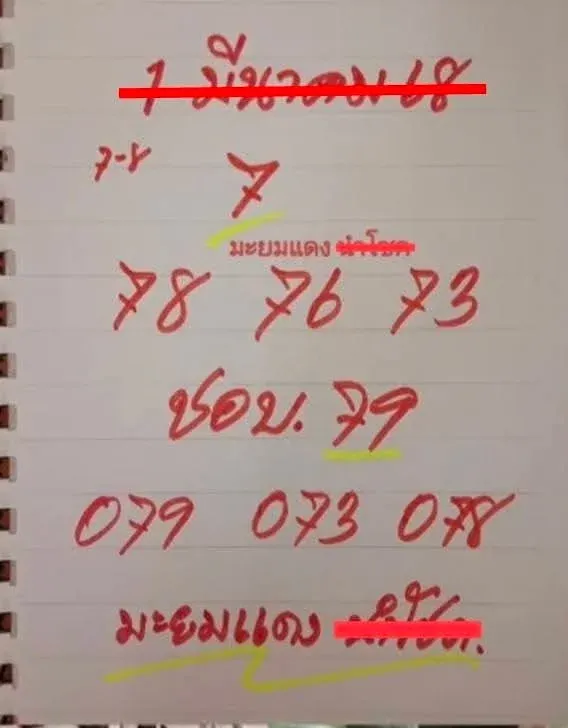 1 มีนาคม 68
7-8
7
มะยมแดง นำโชค
78 76 73
ชอบ. 79
079 073 078
มะยมแดง นำโชค.